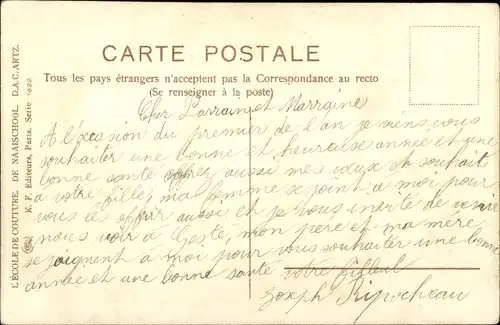 CARTE POSTALE
Tous les pays étrangers n'acceptent pas la Correspondance au recto
(Se renseigner à la poste)
L'ÉCOLE DE COUTURE DE NAAISCHOOL. D.A.C. ARTZ.
E. F. Editeurs, Paris. Serie 1022
Cher Parrain et Marraine
A l'occasion du premier de l'an je viens vous
souhaiter une bonne et heureuse année et une
bonne santé aussi mes vœux et souhait
à votre fille, ma femme se joint à moi pour
vous les offrir aussi et je vous invite de venir
nous voir à Gesté, mon père et ma mère
se joignent à moi pour vous souhaiter une bonne
année et une bonne santé votre filleul
Joseph Ripocheau